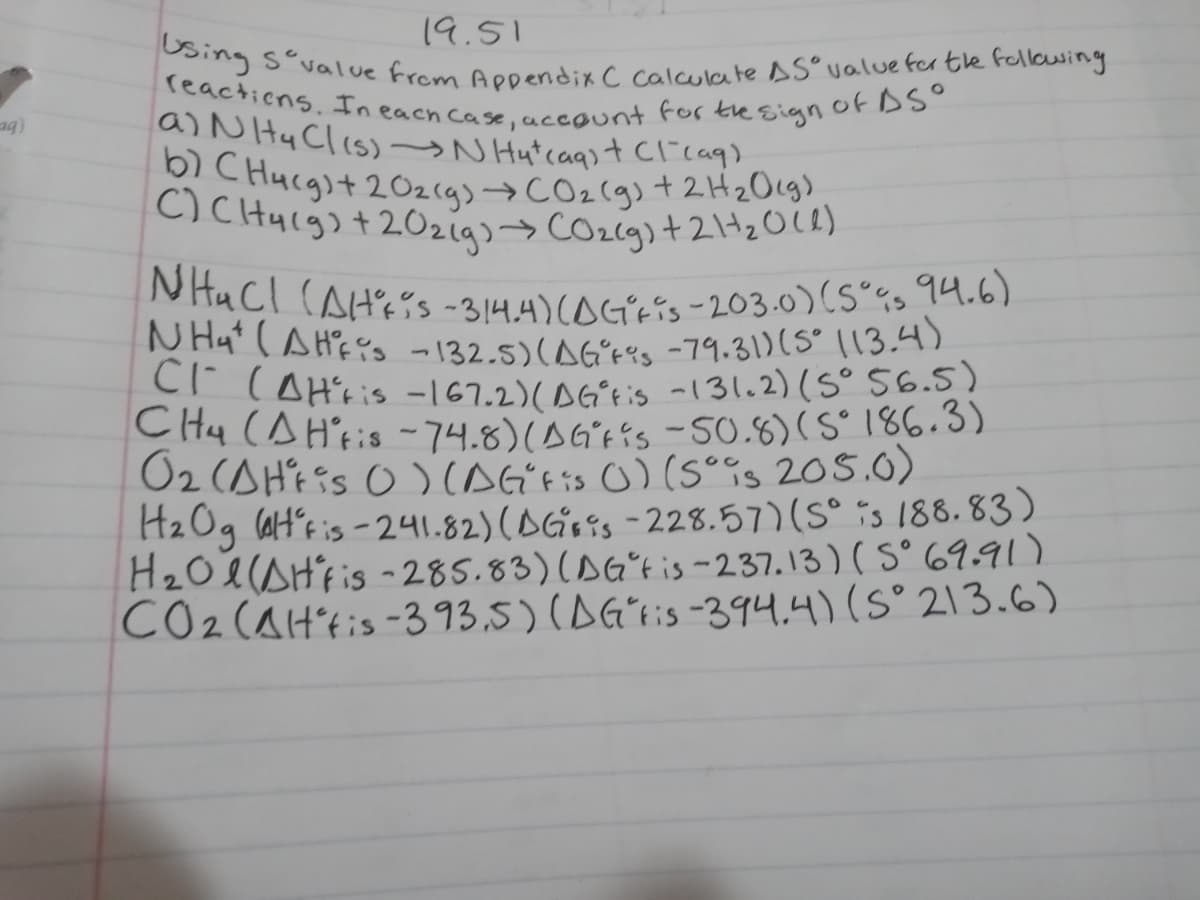 19.51
Using S° value from Appendix C calculate ΔS° value for the following
reactions. In each case, account for the sign of ΔS°
aq)
a) NH4Cl(s) → NH4+(aq) + Cl-(aq)
b) CH4(g) + 2O2(g) → CO2(g) + 2H2O(g)
C) CH4(g) + 2O2(g) → CO2(g) + 2H2O(l)
NH4Cl (ΔH°f is -314.4)(ΔG°f is -203.0)(S° is 94.6)
NH4+ (ΔH°f is -132.5)(ΔG°f is -79.31)(S° 113.4)
Cl- (ΔH°f is -167.2)(ΔG°f is -131.2)(S° 56.5)
CH4 (ΔH°f is -74.8)(ΔG°f is -50.8)(S° 186.3)
O2 (ΔH°f is 0)(ΔG°f is 0)(S° is 205.0)
H2Og (ΔH°f is -241.82)(ΔG°f is -228.57)(S° is 188.83)
H2Ol (ΔH°f is -285.83)(ΔG°f is -237.13)(S° 69.91)
CO2 (ΔH°f is -393.5)(ΔG°f is -394.4)(S° 213.6)